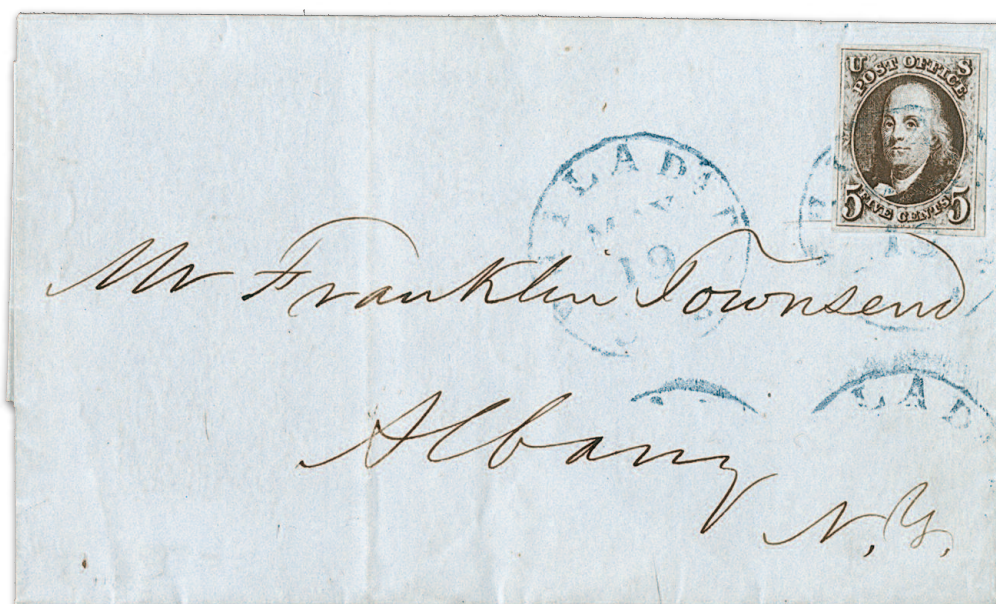 U S
POST OFFICE
5 FIVE CENTS 5
ILADEL
MAY
19
19
Mr Franklin Townsend
LAD
Albany
N.Y.